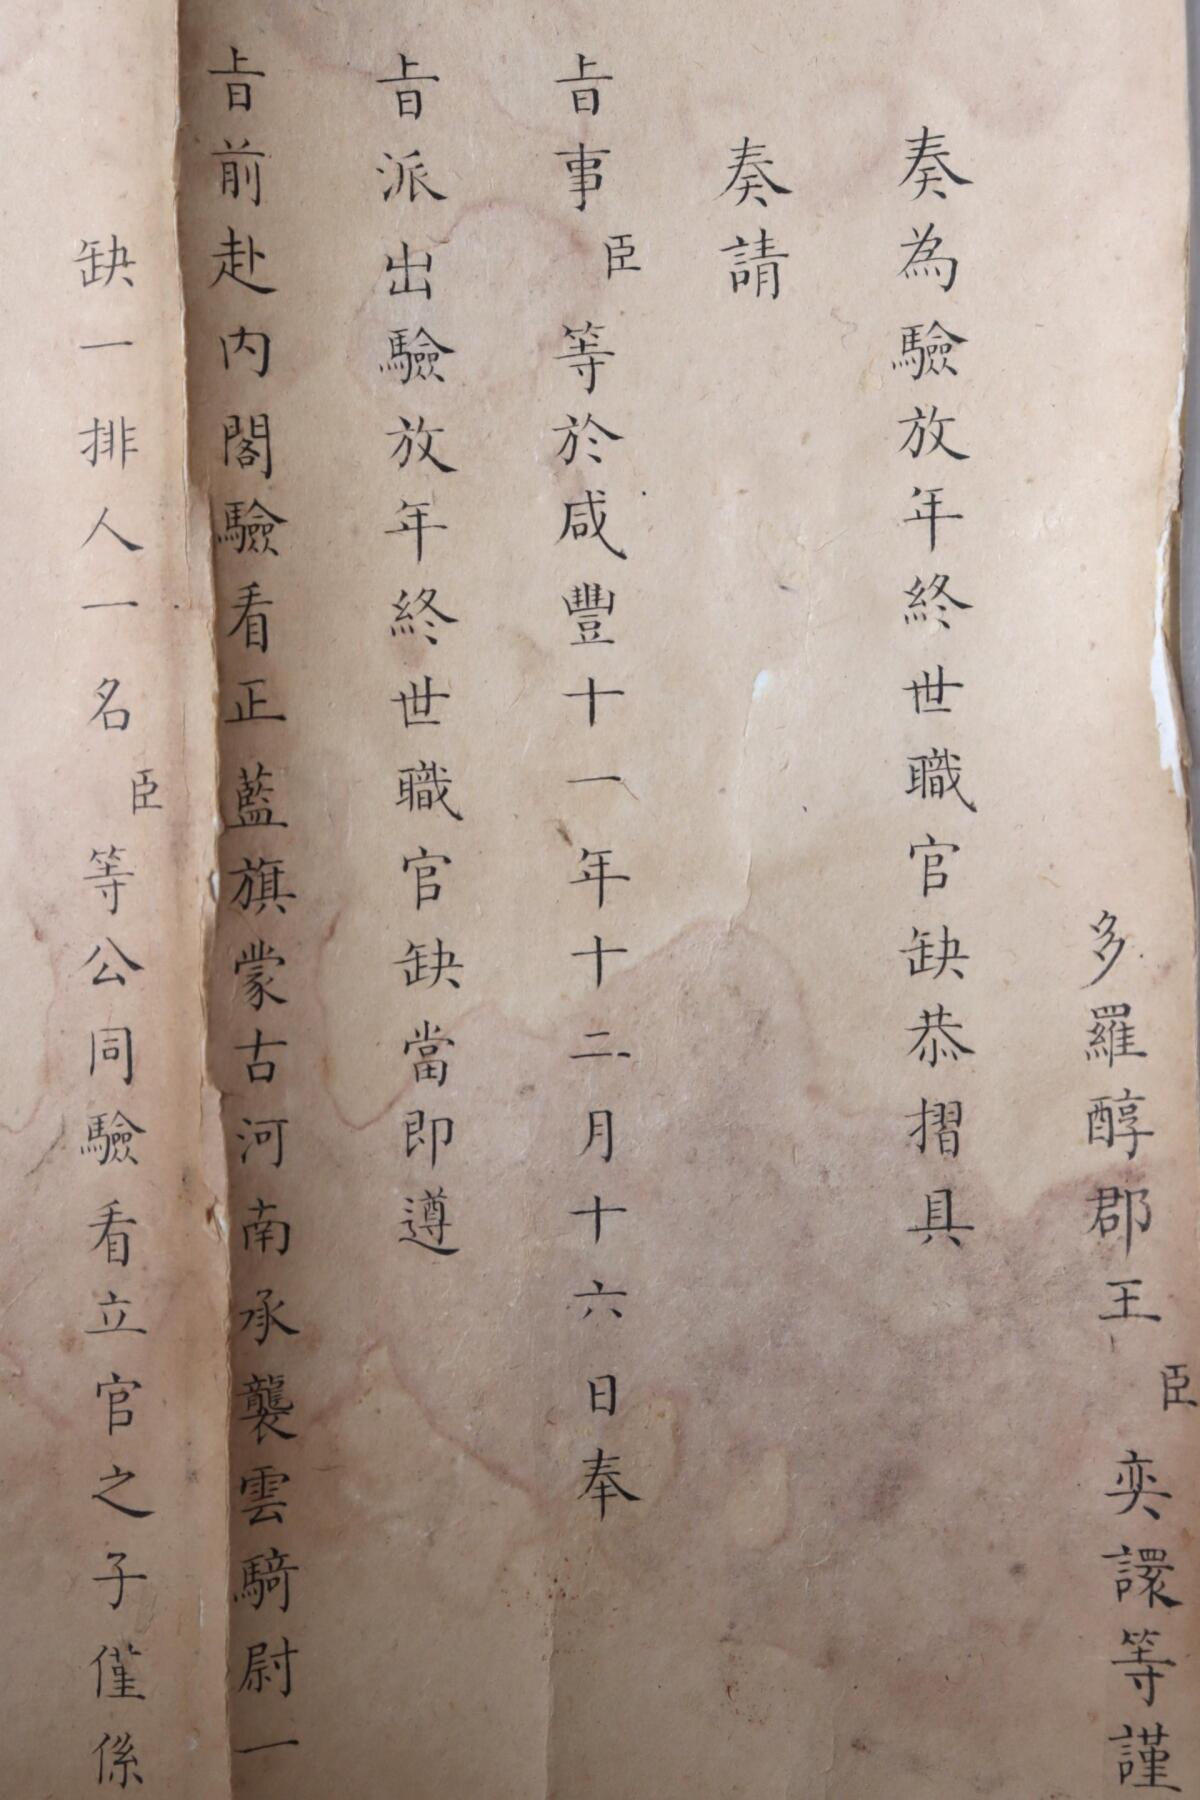 多羅醇郡王臣奕譞等謹
奏為驗放年終世職官缺恭摺具
奏請
旨事臣等於咸豐十一年十二月十六日奉
旨派出驗放年終世職官缺當即遵
旨前赴内閣驗看正藍旗蒙古河南承襲雲騎尉一
缺一排人一名臣等公同驗看立官之子僅係